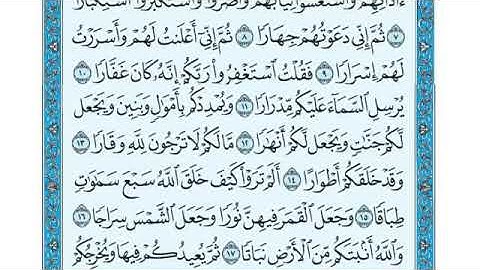 ءَاذَانِهِمْ وَٱسْتَغْشَوْا۟ ثِيَابَهُمْ وَأَصَرُّوا۟ وَٱسْتَكْبَرُوا۟ ٱسْتِكْبَارًا
٧ ثُمَّ إِنِّى دَعَوْتُهُمْ جِهَارًا ٨ ثُمَّ إِنِّىٓ أَعْلَنتُ لَهُمْ وَأَسْرَرْتُ
لَهُمْ إِسْرَارًا ٩ فَقُلْتُ ٱسْتَغْفِرُوا۟ رَبَّكُمْ إِنَّهُۥ كَانَ غَفَّارًا ١٠
يُرْسِلِ ٱلسَّمَآءَ عَلَيْكُم مِّدْرَارًا ١١ وَيُمْدِدْكُم بِأَمْوَٰلٍ وَبَنِينَ وَيَجْعَل
لَّكُمْ جَنَّٰتٍ وَيَجْعَل لَّكُمْ أَنْهَٰرًا ١٢ مَّا لَكُمْ لَا تَرْجُونَ لِلَّهِ وَقَارًا ١٣
وَقَدْ خَلَقَكُمْ أَطْوَارًا ١٤ أَلَمْ تَرَوْا۟ كَيْفَ خَلَقَ ٱللَّهُ سَبْعَ سَمَٰوَٰتٍ
طِبَاقًا ١٥ وَجَعَلَ ٱلْقَمَرَ فِيهِنَّ نُورًا وَجَعَلَ ٱلشَّمْسَ سِرَاجًا ١٦
وَٱللَّهُ أَنۢبَتَكُم مِّنَ ٱلْأَرْضِ نَبَاتًا ١٧ ثُمَّ يُعِيدُكُمْ فِيهَا وَيُخْرِجُكُمْ